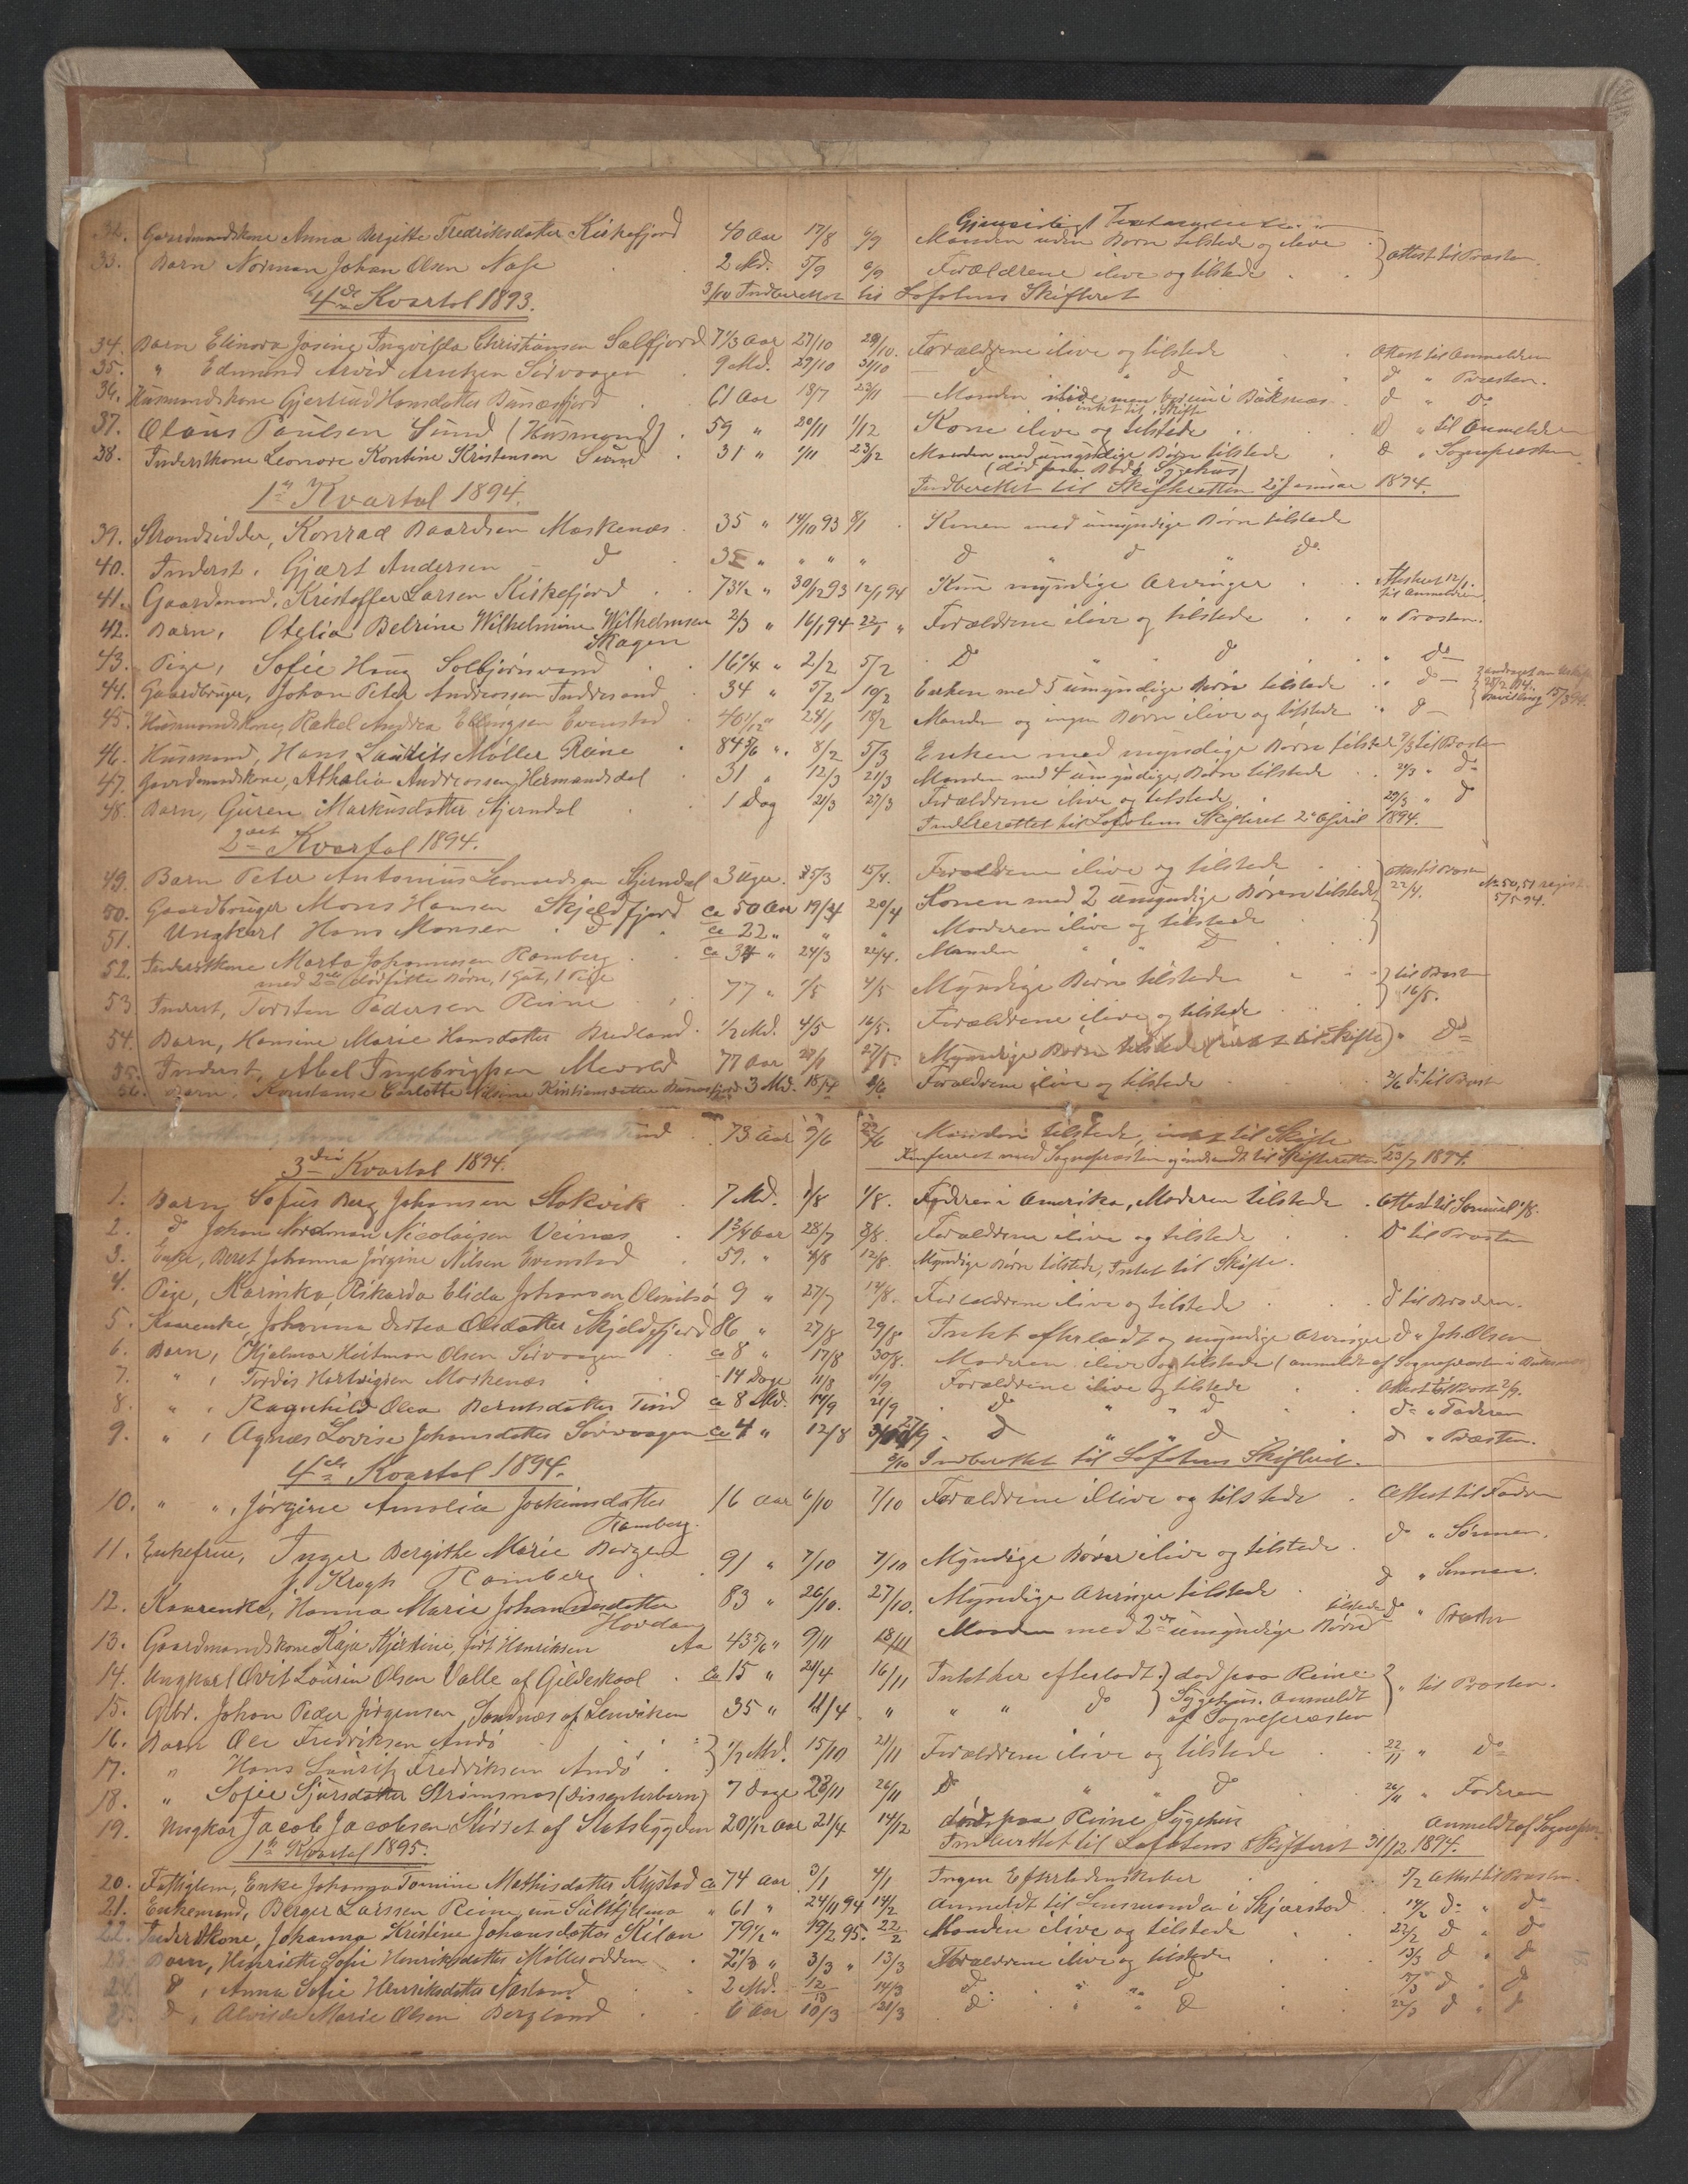 Gjensidigt Testamente
32. Gaardmandskone Anna Bergitte Fredriksdatter Kirkefjord 40 Aar 17/8 6/9 Manden uden Børn tilstede og ilive
33. Barn Norman Johan Olsen Næss 2 Md. 5/9 6/9 Forældrene ilive og tilstede } Attest til Præsten.
4de Kvartal 1893. 3/10 Indberettet til Lofotens Skifteret
34. Barn Elinora Josine Ingvilda Christiansen Selfjord 7 1/3 Aar 27/10 29/10. Forældrene ilive og tilstede Attest til Anmelderen
35. " Edmund Arvid Arntzen Sørvaagen 9 Md. 29/10 31/10 — d " d d " Præsten.
36. Husmandskone Gjertrud Hansdatter Bunesfjord 61 Aar 18/7 23/11 — Manden ilive, men er i Buksnes d " Do
intet til Skifte
37. Olaus Paulsen Sund (Husmand) 59 " 20/11 1/12 Kone ilive og tilstede D " til Anmelderen
38. Inderstkone Leonore Kontine Kristensen Sund 31 " 1/11 23/12 Manden med umyndige Børn tilstede D " Sognepræsten
(død paa Bodø Sygehus)
1ste Kvartal 1894. Indberettet til Skifteretten 2 Januar 1894.
39. Strandsidder, Konrad Baardsen Moskenæs 35 " 14/10 93 8/1 Konen med umyndige Børn tilstede
40. Inderst, Gjært Andersen d 35 " " " " d " d " Do.
41. Gaardmand, Kristoffer Larsen Kirkefjord 73 1/2 " 30/12 93 12/1 94 Kun myndige Arvinger Attesteret 12/1. til Anmelderen
42. Barn, Otelia Belrine Wilhelmine Wilhelmsen 2/3 " 16/1 94 22/1 " Forældrene ilive og tilstede " Præsten.
Skagen
43. Pige, Sofie Haug Solbjørnvand 16 1/4 " 2/2 5/2 D " d " Do
44. Gaardbruger, Johan Peter Andreassen Indresand 34 " 5/2 10/2 Enken med 5 umyndige Børn tilstede " d —
45. Husmandskone, Rakel Andrea Ellingsen Evenstad 40 1/12 " 24/1 18/2 Manden og ingen Børn ilive og tilstede " d —
46. Husmand, Hans Lauritz Møller Reine 84 5/6 " 8/2 5/3 Enken med myndige Børn tilstede 5/3 til Præsten
47. Gaardmandskone, Athalia Andreassen, Hermandsdal 31 " 12/3 21/3 Manden med 4 umyndige Børn tilstede 21/3 " d
48. Barn, Guren Markusdatter Tjerndal 1 Dag 21/3 27/3 Forældrene ilive og tilstede 29/3 " d
2det Kvartal 1894. Indberettet til Lofotens Skifteret 2 April 1894.
49. Barn Peter Antonius Leonardsen Tjerndal 3 Uger. 25/3 15/4. Forældrene ilive og tilstede
50. Gaardbruger Mons Hansen Skjeldfjord ca 50 Aar 19/4 20/4 Konen med 2 umyndige Børn tilstede 22/4. No 50, 51 registr. 5/5 94.
51. Ungkarl Hans Monsen d ca 22 " " " Moderen ilive og tilstede
52. Inderstkone Marta Johannesen Ramberg ca 34 " 24/3 22/4. Manden " " D
med 2de dødfødte Børn, 1 Gut, 1 Pige
53. Inderst, Torsten Pedersen Reine 77 " 1/5 4/5 Myndige Børn tilstede } til Præsten 16/5.
54. Barn, Hansine Marie Hansdatter Bredland 1/2 Md. 4/5 16/5. Forældrene ilive og tilstede
55. Inderst, Abel Ingebrigtsen Mevold 77 Aar 27/5. Myndige Børn tilstede (intet til Skifte) " Do
56. Barn, Konstanse Carlotte Kristiansdatter Bunesfjord 3 Md. 18/4 2/6 Forældrene ilive og tilstede 2/6 d til Præsten
73 Aar 9/6 23/6 Manden tilstede, intet til Skifte
3die Kvartal 1894. Konfereret med Sognepræsten og indsendt til Skifteretten 23/7 1894.
1. Barn, Sofus Berg Johansen Stokvik 7 Md. 1/8 1/8. Faderen i Amerika, Moderen tilstede Attest til 1/8.
2. d Johan Nordman Nicolaisen Veines 1 3/4 Aar 28/7 8/8. Forældrene ilive og tilstede D til Præsten
3. Enke, Beret Johanna Jørgine Nilsen Evenstad 59 " 4/8 12/8. Myndige Børn tilstede, Intet til Skifte.
4. Pige, Karinka Rikarda Elida Johansen Olenilsø 9 " 27/7 14/8. Forældrene ilive og tilstede d til Broderen.
5. Kaarenke, Johanna Dortea Olsdatter Skjeldfjord 86 " 27/8 29/8 Intet efterladt og myndige Arvinger d " Joh. Olsen
6. Barn, Hjalmar Heitman Olsen Sørvaagen ca 8 " 17/8 30/8. Moderen ilive og tilstede (anmeldt af Sognepræsten i Buksnes)
7. " , Tordis Hartvigsen Moskenæs 14 Dage 11/8 1/9 Forældrene ilive og tilstede Attest til Præst 2/9.
8. " , Ragnhild Olea Berntsdatter Tind ca 8 Md. 14/9 21/9 do " " d d " Faderen
9. " , Agnæs Lovise Johansdatter Sørvaagen ca 4 " 12/8 27/9 d " " d d " Præsten.
4de Kvartal 1894. 3/10 Indberettet til Lofotens Skifteret.
10. " ", Jørgine Amalia Joakimsdatter 16 Aar 6/10 7/10 Forældrene ilive og tilstede Attest til Fadren
Ramberg.
11. Enkefrue, Inger Bergithe Marie Berger 91 " 7/10 7/10 Myndige Børn ilive og tilstede do " Sønnen.
f. Krogh Ramberg
12. Kaarenke, Hanna Marie Johannesdatter 83 " 26/10. 27/10. Myndige Arvinger tilstede d " Sønnen.
Hovdan
13. Gaardmandskone Kaja Kjerstine, født Henriksen Aa 43 5/6 " 9/11 18/11 Manden med 2de umyndige Børn tilstede do " Præsten
14. Ungkarl Ovit Laurin Olsen Valle af Gildeskaal ca 15 " 21/4 16/11 Intet her efterladt } død paa Reine
15. Gbr. Johan Peder Jørgensen, Sandnæs af Lenviken 35 " 4/4 " " " do } Sygehus. Anmeldt af Sognepræsten } " til Præsten.
16. Barn Ole Fredriksen Andø
17. " Hans Lauritz Fredriksen Andø } 1/2 Md. 15/10 21/11 Forældrene ilive og tilstede 22/11 " do
18. " Sofie Sjursdatter Strømsnes (Dissenterbarn) 7 Dage 23/11 26/11 D " d 26/11 " Faderen
19. Ungkar Jacob Jacobsen Størset af Statsbygden 20 1/12 Aar 21/4 14/12 død paa Reine Sygehus Anmeldt af Sognepr.
1ste Kvartal 1895. Indberettet til Lofotens Skifteret 31/12 1894.
20. Fattiglem, Enke Johanna Tomine Mathisdatter Krystad ca 74 Aar 3/1 4/1 Ingen Efterladenskaber 5/2 Attest til Præsten.
21. Enkemand, Berger Larssen Reine " 61 " 24/11 94 14/2 Anmeldt til Lensmanden i Skjærstad 14/2 d " d
22. Inderstkone, Johanna Kristine Johansdatter Kilan 79 1/2 " 19/2 95. 22/2 Manden ilive og tilstede 22/2 d " d
23. Barn, Henriette Sofie Henriksdatter Møllerodden 2 1/3 " 3/3 " 13/3 Forældrene ilive og tilstede 13/3 d " d
24. d , Anna Sofie Henriksdatter Næsland 2 Md. 14/3 d " " d d " d
25. d , Alvilde Marie Olsen Bergland 6 Aar 10/3 21/3 d " " d 22/3 d " d